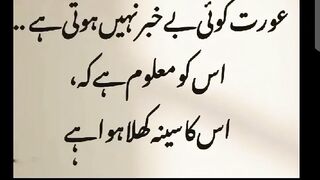 عورت کوئی بے خبر نہیں ہوتی ہے ..
اس کو معلوم ہے کہ،
اس کا سینہ کھلا ہوا ہے